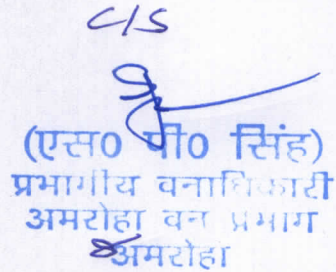 C/S
(एस0 पी0 सिंह)
प्रभागीय वनाधिकारी
अमरोहा वन प्रभाग
अमरोहा